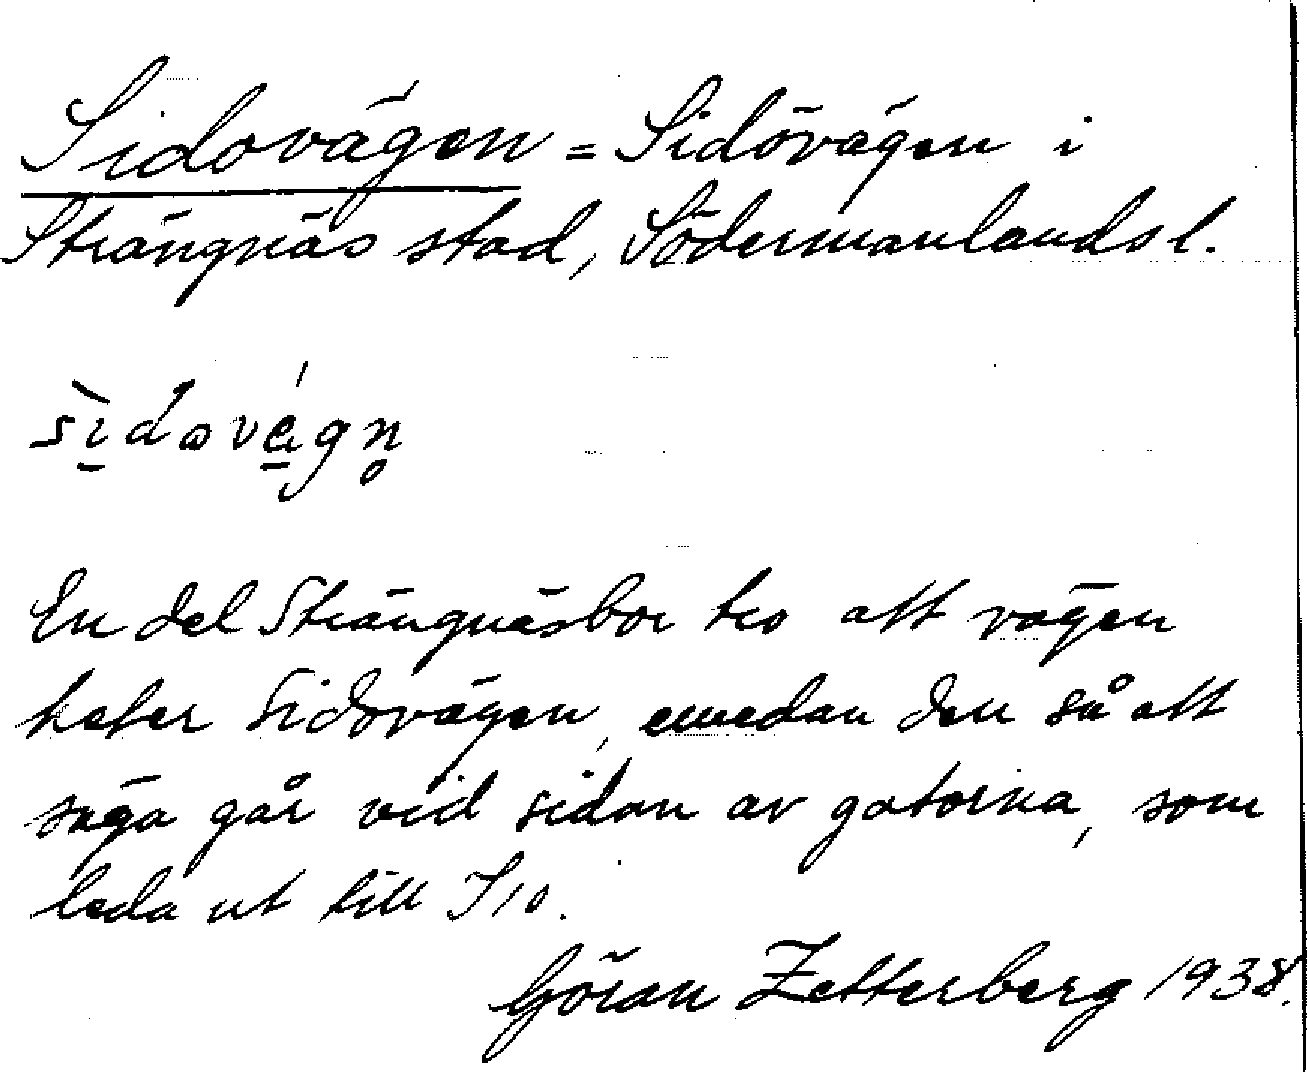 Sidovägen = Sidövägen i
Strängnäs stad, Södermanlands l.
En del Strängnäsbor tro att vägen
heter Sidovägen, emedan den så att
säga går vid sidan av gatorna, som
leda ut till
Göran Zetterberg 1938.